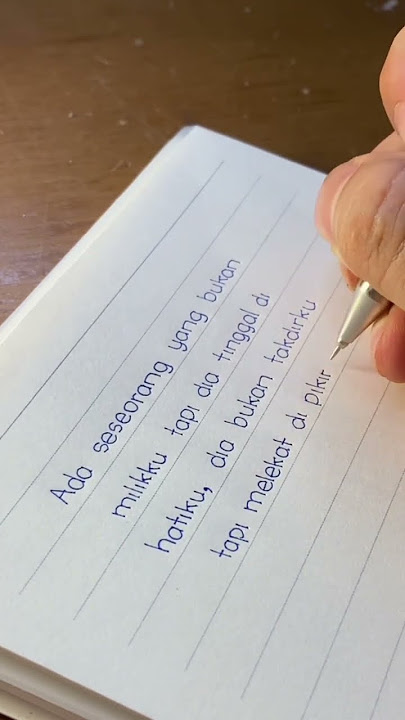 Ada seseorang yang bukan
milikku tapi dia tinggal di
hatiku, dia bukan takdirku
tapi melekat di pikir